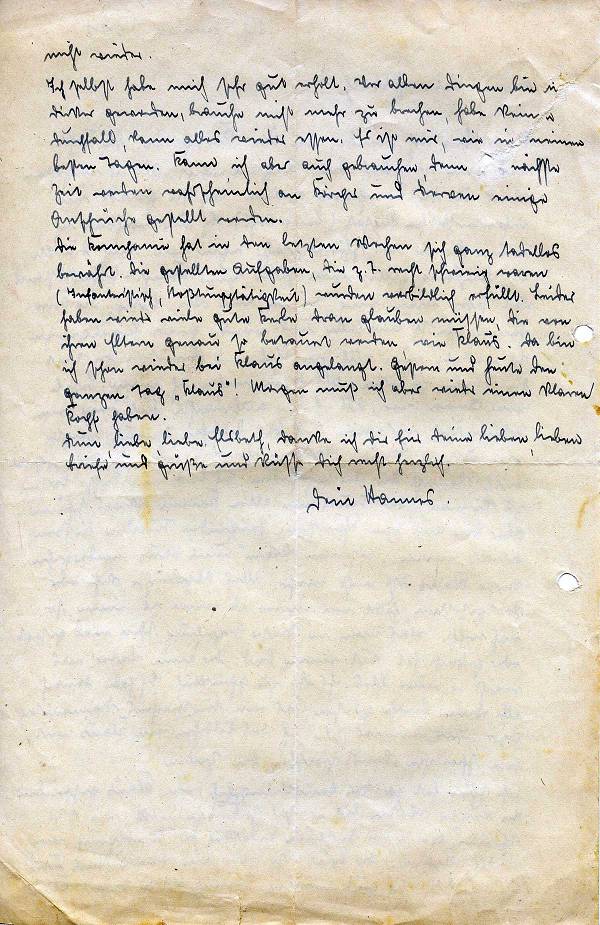 nicht wieder.
Ich selbst habe mich sehr gut erholt. Vor allen Dingen bin i
dicker geworden, brauche nicht mehr zu brechen, habe kein
Durchfall, kann alles wieder essen. Es ist mir, wie in meinen
besten Tagen. Kann ich aber auch gebrauchen, denn nächste
Zeit werden wahrscheinlich an Körper und Nerven einige
Ansprüche gestellt werden.
Die Kompanie hat in den letzten Wochen sich ganz tadellos
bewährt. Die gestellten Aufgaben, die z.T. recht schwierig waren
(Infanteristisch, Stoßtrupptätigkeit) wurden vorbildlich erfüllt. Leider
haben wieder viele gute Kerle dran glauben müssen, die von
ihren Eltern genau so betrauert werden wie Klaus. Da bin
ich schon wieder bei Klaus angelangt. Gestern und heute den
ganzen Tag „Klaus"! Morgen muß ich aber wieder einen klaren
Kopf haben.
Nun, liebe, liebe Elsbeth, danke ich Dir für Deine lieben, lieben
Briefe und grüße und küsse Dich recht herzlich.
Dein Hannes.